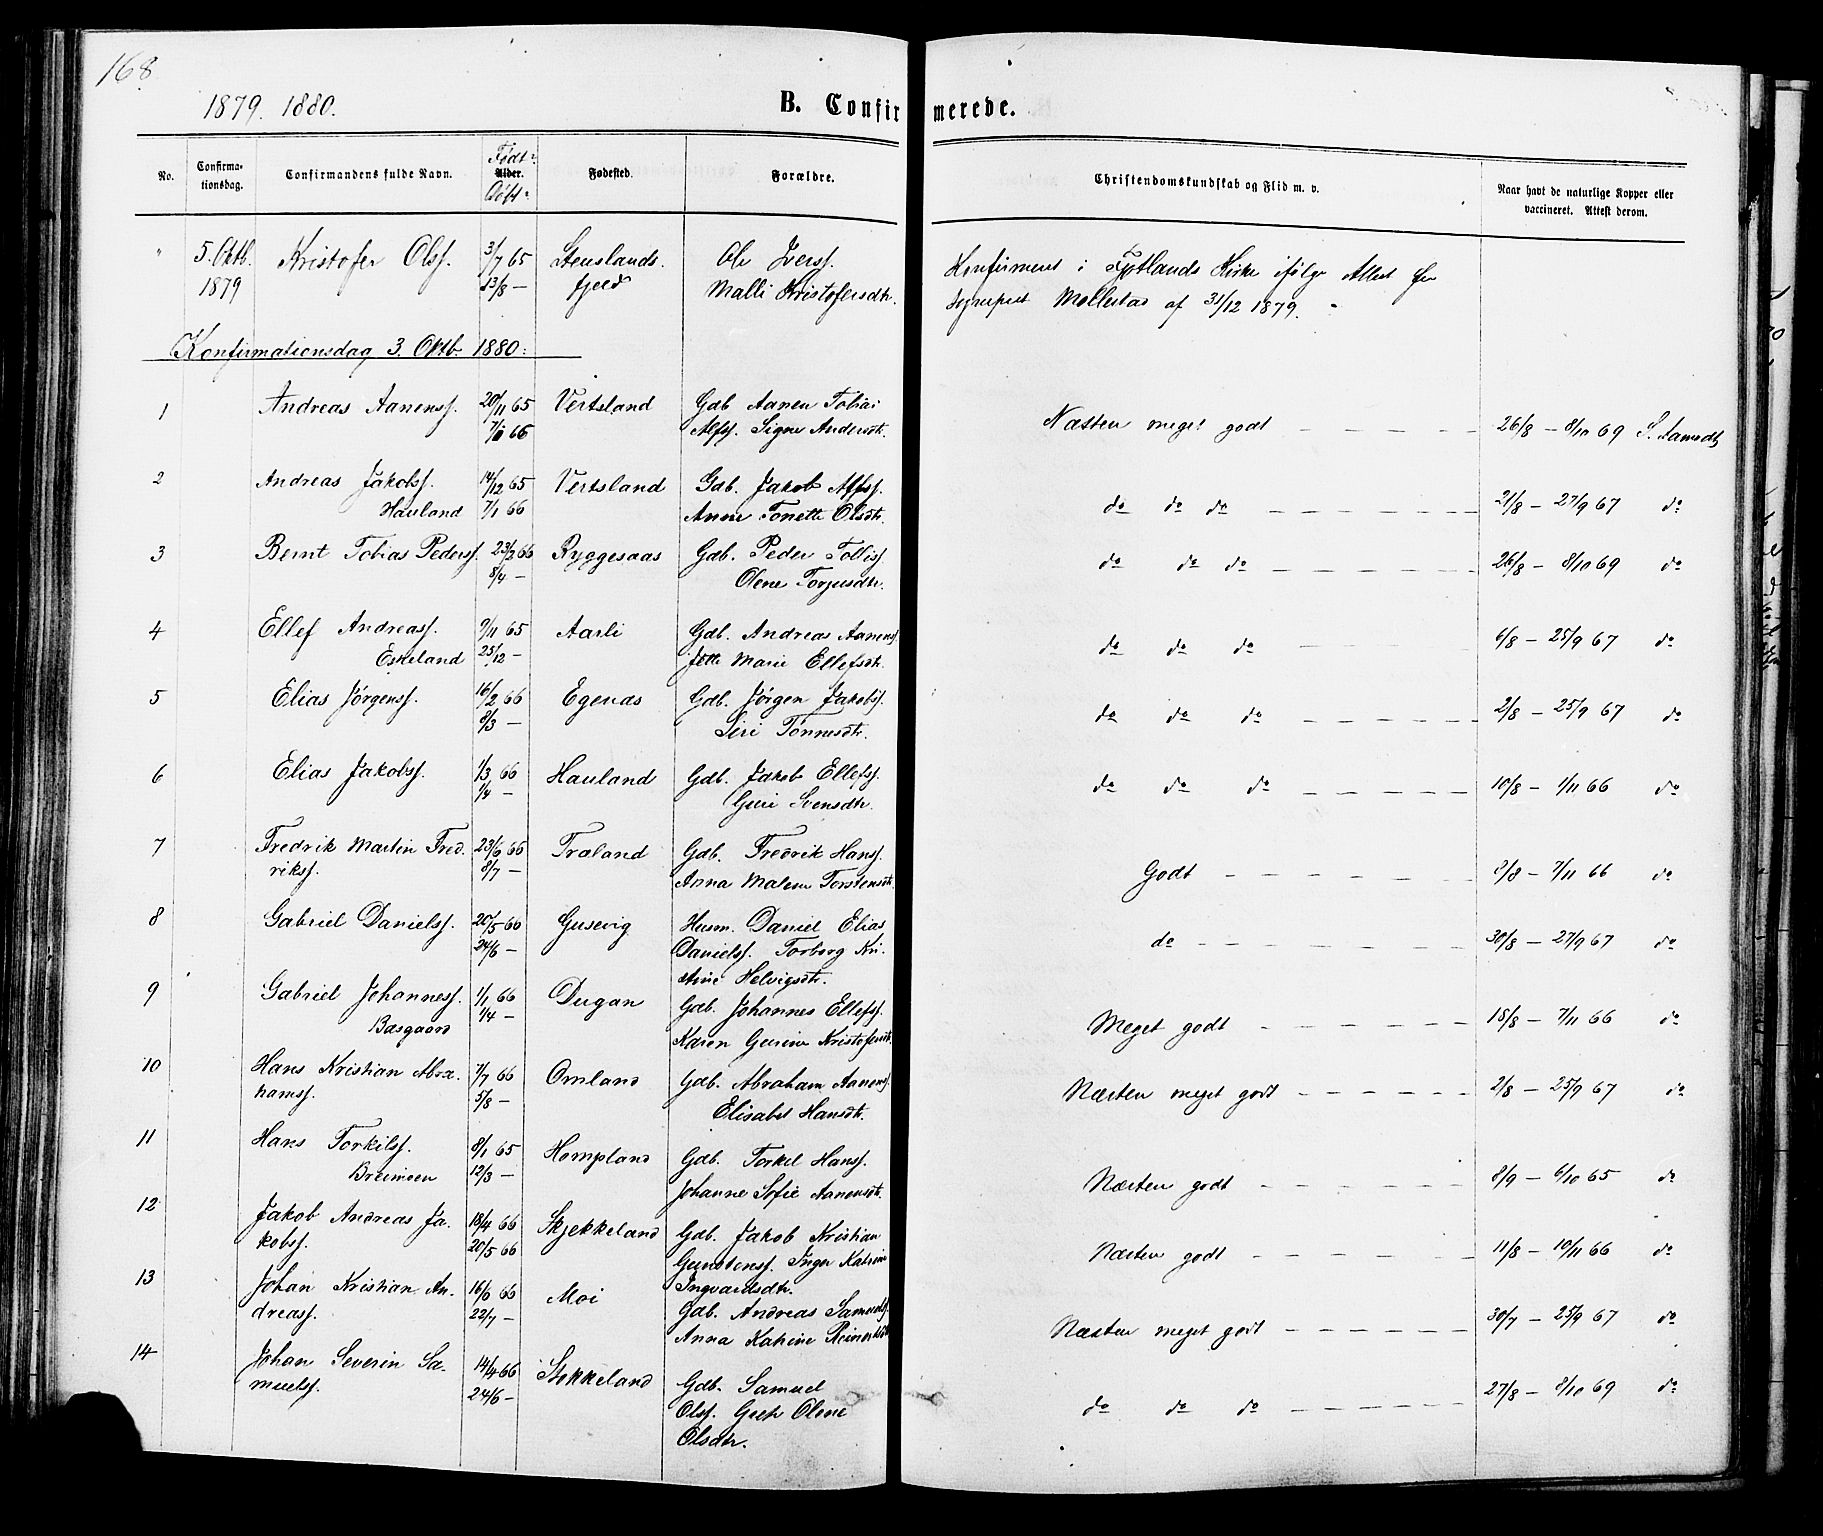 168.
1879. 1880.
B. Confirmerede.
No.
Confirma-
tionsdag.
Confirmandens fulde Navn.
Født:
Alder.
Døbt:
Fødested.
Forældre.
Christendomskundskab og Flid m. v.
Naar havt de naturlige Kopper eller
vaccineret. Attest derom.
" 5. Oktb. Kristofer Olss. 3/7 65 Stenslands- Ole Iverss. Konfirmeret i Kirke ifølge Attest fra
1879 13/8 — fjeld Malli Kristofersdtr. Sogneprest Mollestad af 31/12 1879.
Konfirmationsdag 3. Oktb. 1880:
1 Andreas Aanenss. 20/11 65 Vertsland Gdb Aanen Tobias Næsten meget godt — — — — 26/8 — 8/10 69 S. Aamodt
7/1 66 Alfss. Signe Andersdtr.
2 Andreas Jakobss. 14/12 65 Vertsland Gdb. Jakob Alfss. do do do — — — — 21/8 — 27/9 67 do
Hauland 7/1 66 Anne Tonette Olsdtr.
3 Bernt Tobias Pederss. 23/2 66 Ryggesaas Gdb. Peder Tolliss. do do do — — — — 26/8 — 8/10 69 do
8/4 — Olene Torjusdtr.
4 Ellef Andreass. 9/11 65 Aarli Gdb. Andreas Aanenss. do do do — — — — 6/8 — 25/9 67 do
Eskeland 25/12 — Jette Marie Ellefsdtr.
5 Elias Jørgenss. 16/2 66 Egenas Gdb. Jørgen Jakobss. do do do — — — — 2/8 — 25/9 67 do
9/3 — Siri Tønnesdtr.
6 Elias Jakobss. 1/3 66 Hauland Gdb. Jakob Ellefss. do do do — — — — 10/8 — 1/11 66 do
1/4 — Guri Svensdtr.
7 Fredrik Martin Fred- 23/6 66 Træland Gdb. Fredrik Hanss. Godt — — — — 8/8 — 7/11 66 do
rikss. 8/7 — Anna Malene Torstensdtr.
8 Gabriel Danielss. 20/5 66 Gusevig Husm. Daniel Elias do — — — — 30/8 — 27/9 67 do
24/6 — Danielss. Torborg Kri-
stine Helvigsdtr.
9 Gabriel Johanness. 1/1 66 Dugan Gdb. Johannes Ellefss. Meget godt — — — — 18/8 — 7/11 66 do
Basgaard 1/4 — Karen Gurine Kristofersdtr.
10 Hans Kristian Abra- 7/7 66 Omland Gdb. Abraham Aanenss. Næsten meget godt — — — — 2/8 — 25/9 67 do
hamss. 5/8 — Elisabet Hansdtr.
11 Hans Torkilss. 8/1 65 Hompland Gdb. Torkel Hanss. Næsten godt — — — — 8/9 — 6/10 65 do
Breimoen 12/3 — Johanne Sofie Aanensdtr.
12 Jakob Andreas Ja- 18/4 66 Skjekkeland Gdb. Jakob Kristian Næsten godt — — — — 11/8 — 10/11 66 do
kobss. 20/5 66 Gunstenss. Inger Katrine
Ingvardsdtr.
13 Johan Kristian An- 16/6 66 Moi Gdb. Andreas Samuelss. Næsten meget godt — — — — 30/7 — 25/9 67 do
dreass. 22/7 — Anna Katrine Reinertsdtr
14 Johan Severin Sa- 14/4 66 Stokkeland Gdb. Samuel do do do — — — — 27/8 — 8/10 69 do
muelss. 24/6 — Olss. Olene
Olsdtr.